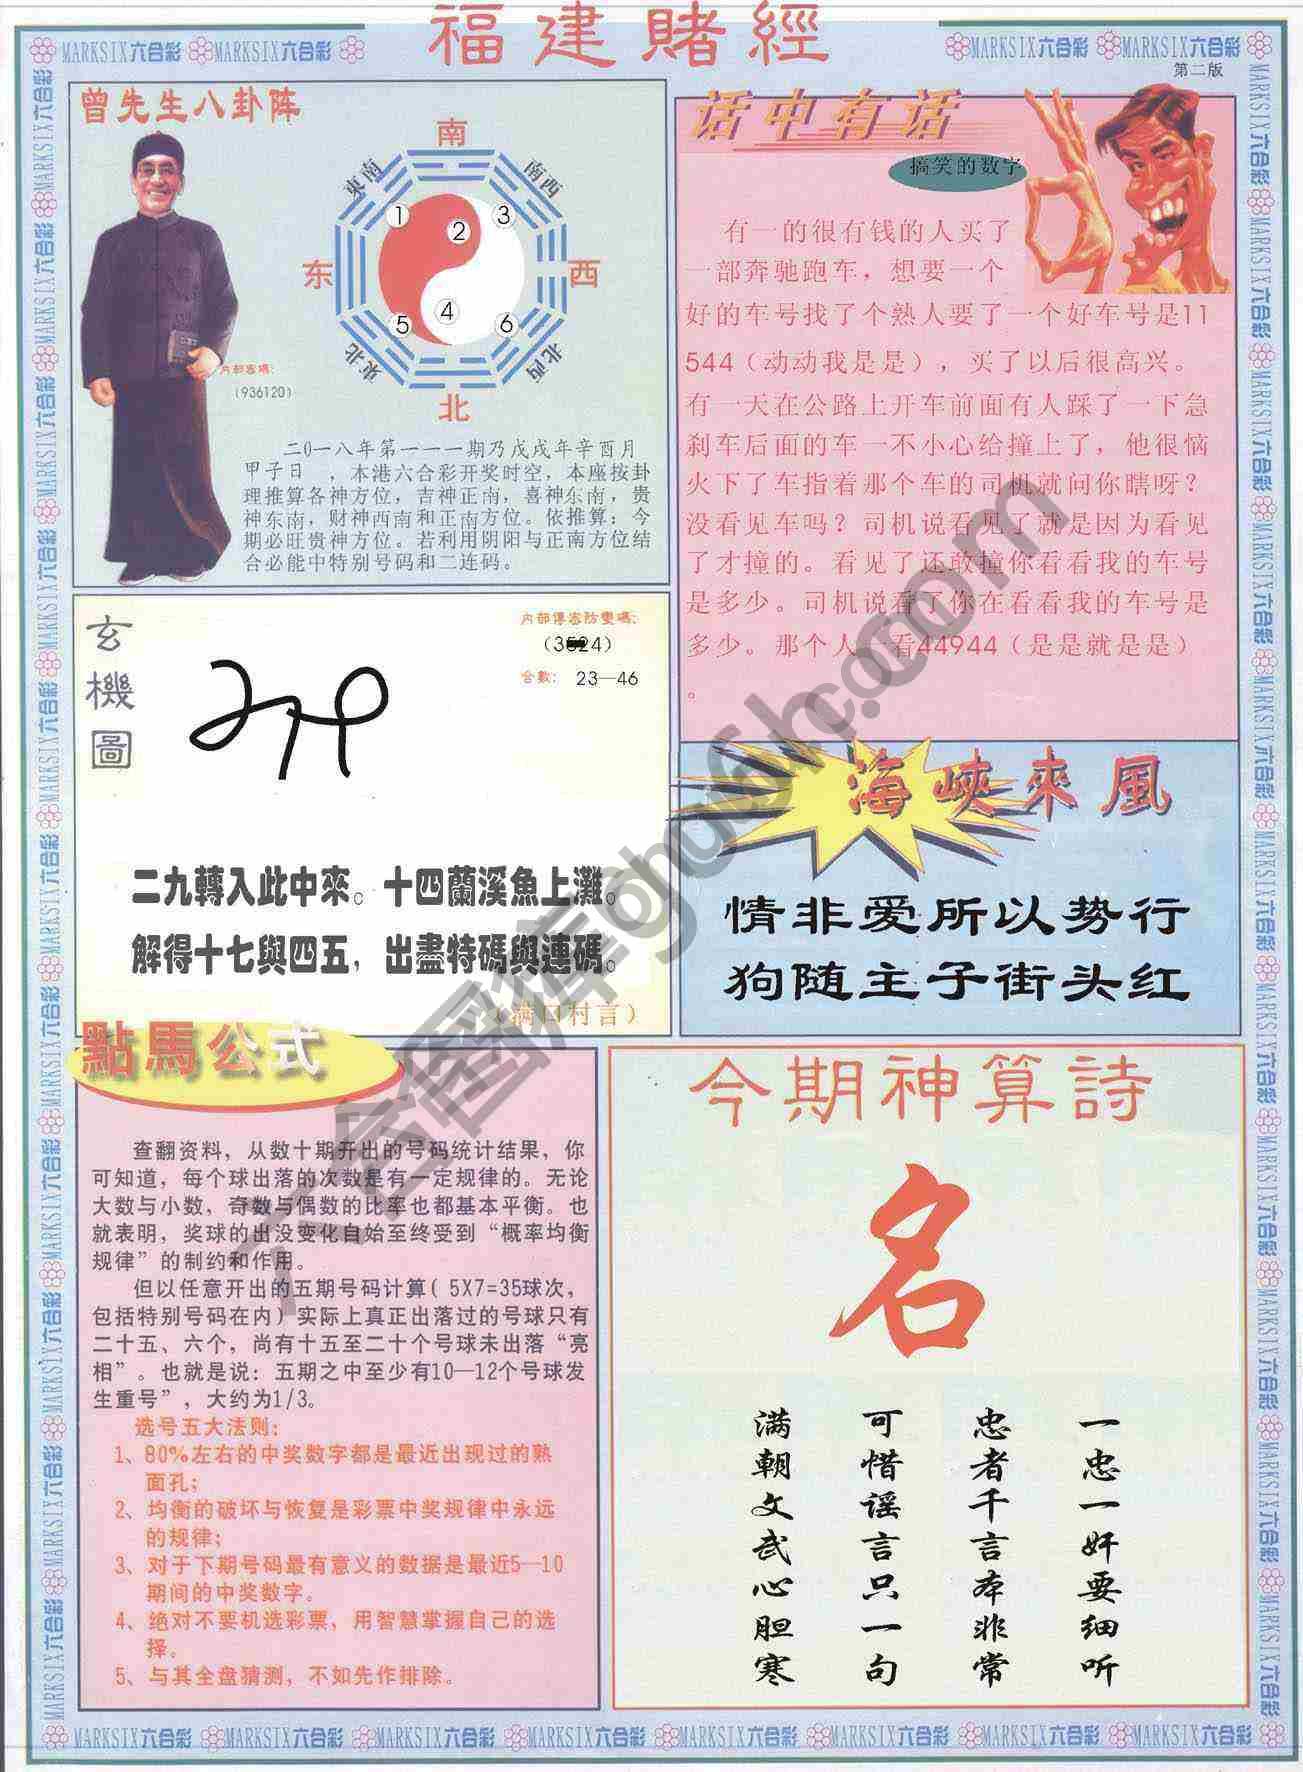 福建賭經
第二版
MARKSIX六合彩 MARKSIX六合彩
MARKSIX六合彩 MARKSIX六合彩
曾先生八卦阵
南
東南
南西
东
西
東北
北西
北
1
2
3
4
5
6
内部密碼：
（936120）
二0一八年第一一一期乃戊戌年辛酉月
甲子日 ，本港六合彩开奖时空，本座按卦
理推算各神方位，吉神正南，喜神东南，贵
神东南，财神西南和正南方位。依推算：今
期必旺贵神方位。若利用阴阳与正南方位结
合必能中特别号码和二连码。
话中有话
搞笑的数字
有一的很有钱的人买了
一部奔驰跑车，想要一个
好的车号找了个熟人要了一个好车号是11
544（动动我是是），买了以后很高兴。
有一天在公路上开车前面有人踩了一下急
刹车后面的车一不小心给撞上了，他很恼
火下了车指着那个车的司机就问你瞎呀？
没看见车吗？司机说看见了就是因为看见
了才撞的。看见了还敢撞你看看我的车号
是多少。司机说看了你在看看我的车号是
多少。那个人一看44944（是是就是是）
。
玄機圖
内部傳密防變碼：
合數： 23—46
二九轉入此中來。十四蘭溪魚上灘。
解得十七與四五，出盡特碼與連碼。
（满口村言）
海峽來風
情非爱所以势行
狗随主子街头红
點馬公式
查翻资料，从数十期开出的号码统计结果，你
可知道，每个球出落的次数是有一定规律的。无论
大数与小数，奇数与偶数的比率也都基本平衡。也
就表明，奖球的出没变化自始至终受到“概率均衡
规律”的制约和作用。
但以任意开出的五期号码计算（ 5X7=35球次，
包括特别号码在内）实际上真正出落过的号球只有
二十五、六个，尚有十五至二十个号球未出落“亮
相”。也就是说：五期之中至少有10—12个号球发
生重号”，大约为1/3。
选号五大法则：
1、80%左右的中奖数字都是最近出现过的熟
面孔；
2、均衡的破坏与恢复是彩票中奖规律中永远
的规律；
3、对于下期号码最有意义的数据是最近5—10
期间的中奖数字。
4、绝对不要机选彩票，用智慧掌握自己的选
择。
5、与其全盘猜测，不如先作排除。
今期神算詩
名
一忠一奸要细听
忠者千言本非常
可惜谣言只一句
满朝文武心胆寒